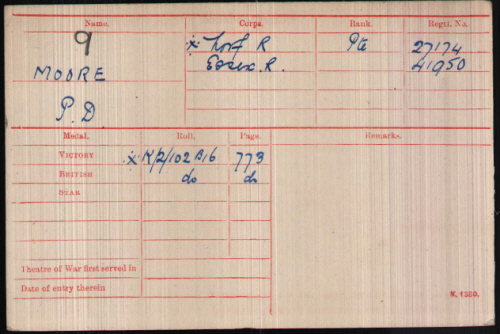 Name. Corps. Rank. Regtl. No.
9 X Norf R Pte 27174
MOORE Essex. R. 41950
P.D
Medal. Roll. Page. Remarks.
VICTORY X K/2/102 B16 773
BRITISH do do
STAR
Theatre of War first served in
Date of entry therein
K. 1380.